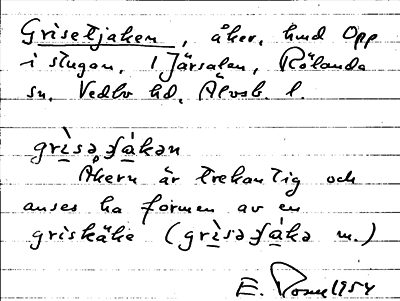 Grisetjaken, åker, hmd Opp
i stugan, 1 Järsalen, Rölanda
sn, Vedbo hd, Älvsb. l.
grìsəʃákən
Åkern är trekantig och
anses ha formen av en
griskäke (grìsəʃákə m.)
E. 1954